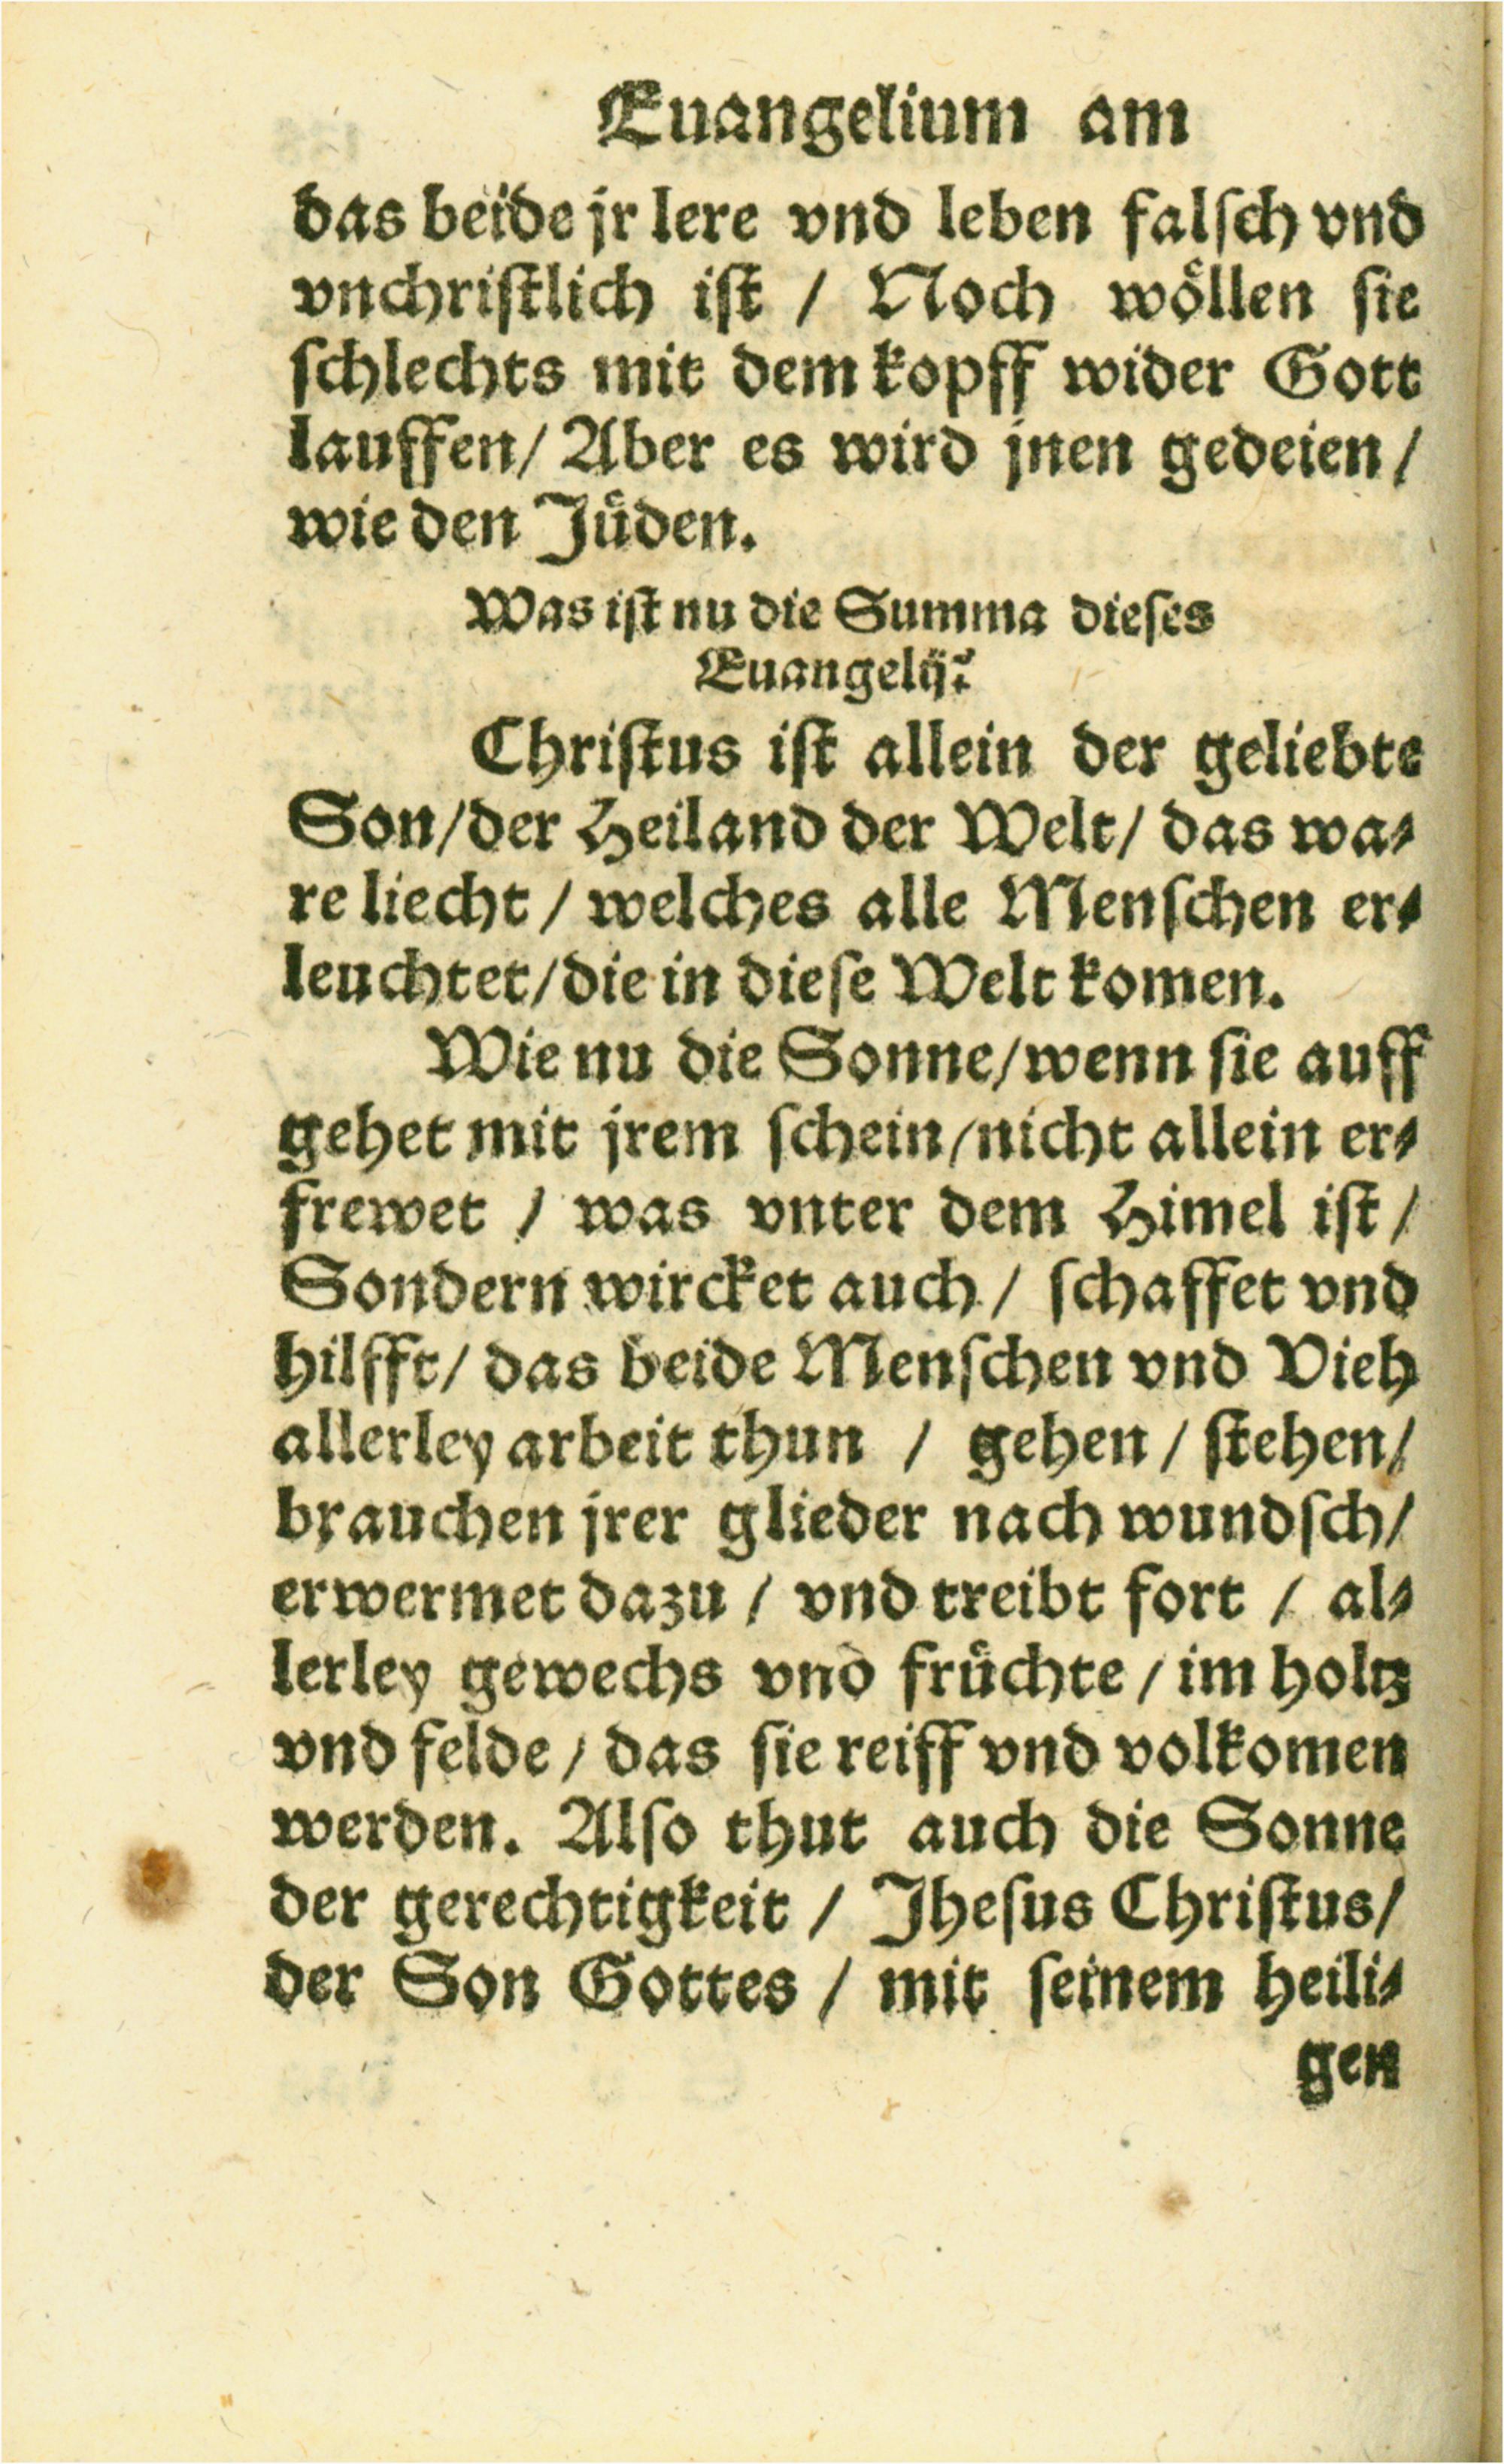 Euangelium am
das beide jr lere vnd leben falſch vnd
vnchriſtlich iſt / Noch woͤllen ſie
ſchlechts mit dem kopff wider Gott
lauffen/ Aber es wird jnen gedeien /
wie den Juͤden.
Was iſt nu die Summa dieſes
Euangelij?
Chriſtus iſt allein der geliebte
Son/der Heiland der Welt/ das wa⸗
re liecht / welches alle Menſchen er⸗
leuchtet/die in dieſe Welt komen.
Wie nu die Sonne/wenn ſie auff
gehet mit jrem ſchein/nicht allein er⸗
frewet / was vnter dem Himel iſt /
Sondern wircket auch / ſchaffet vnd
hilfft/ das beide Menſchen vnd Vieh
allerley arbeit thun / gehen / ſtehen/
brauchen jrer glieder nach wundſch/
erwermet dazu / vnd treibt fort / al⸗
lerley gewechs vnd fruͤchte / im holtz
vnd felde / das ſie reiff vnd volkomen
werden. Alſo thut auch die Sonne
der gerechtigkeit / Jheſus Chriſtus/
der Son Gottes / mit ſeinem heili⸗
gen